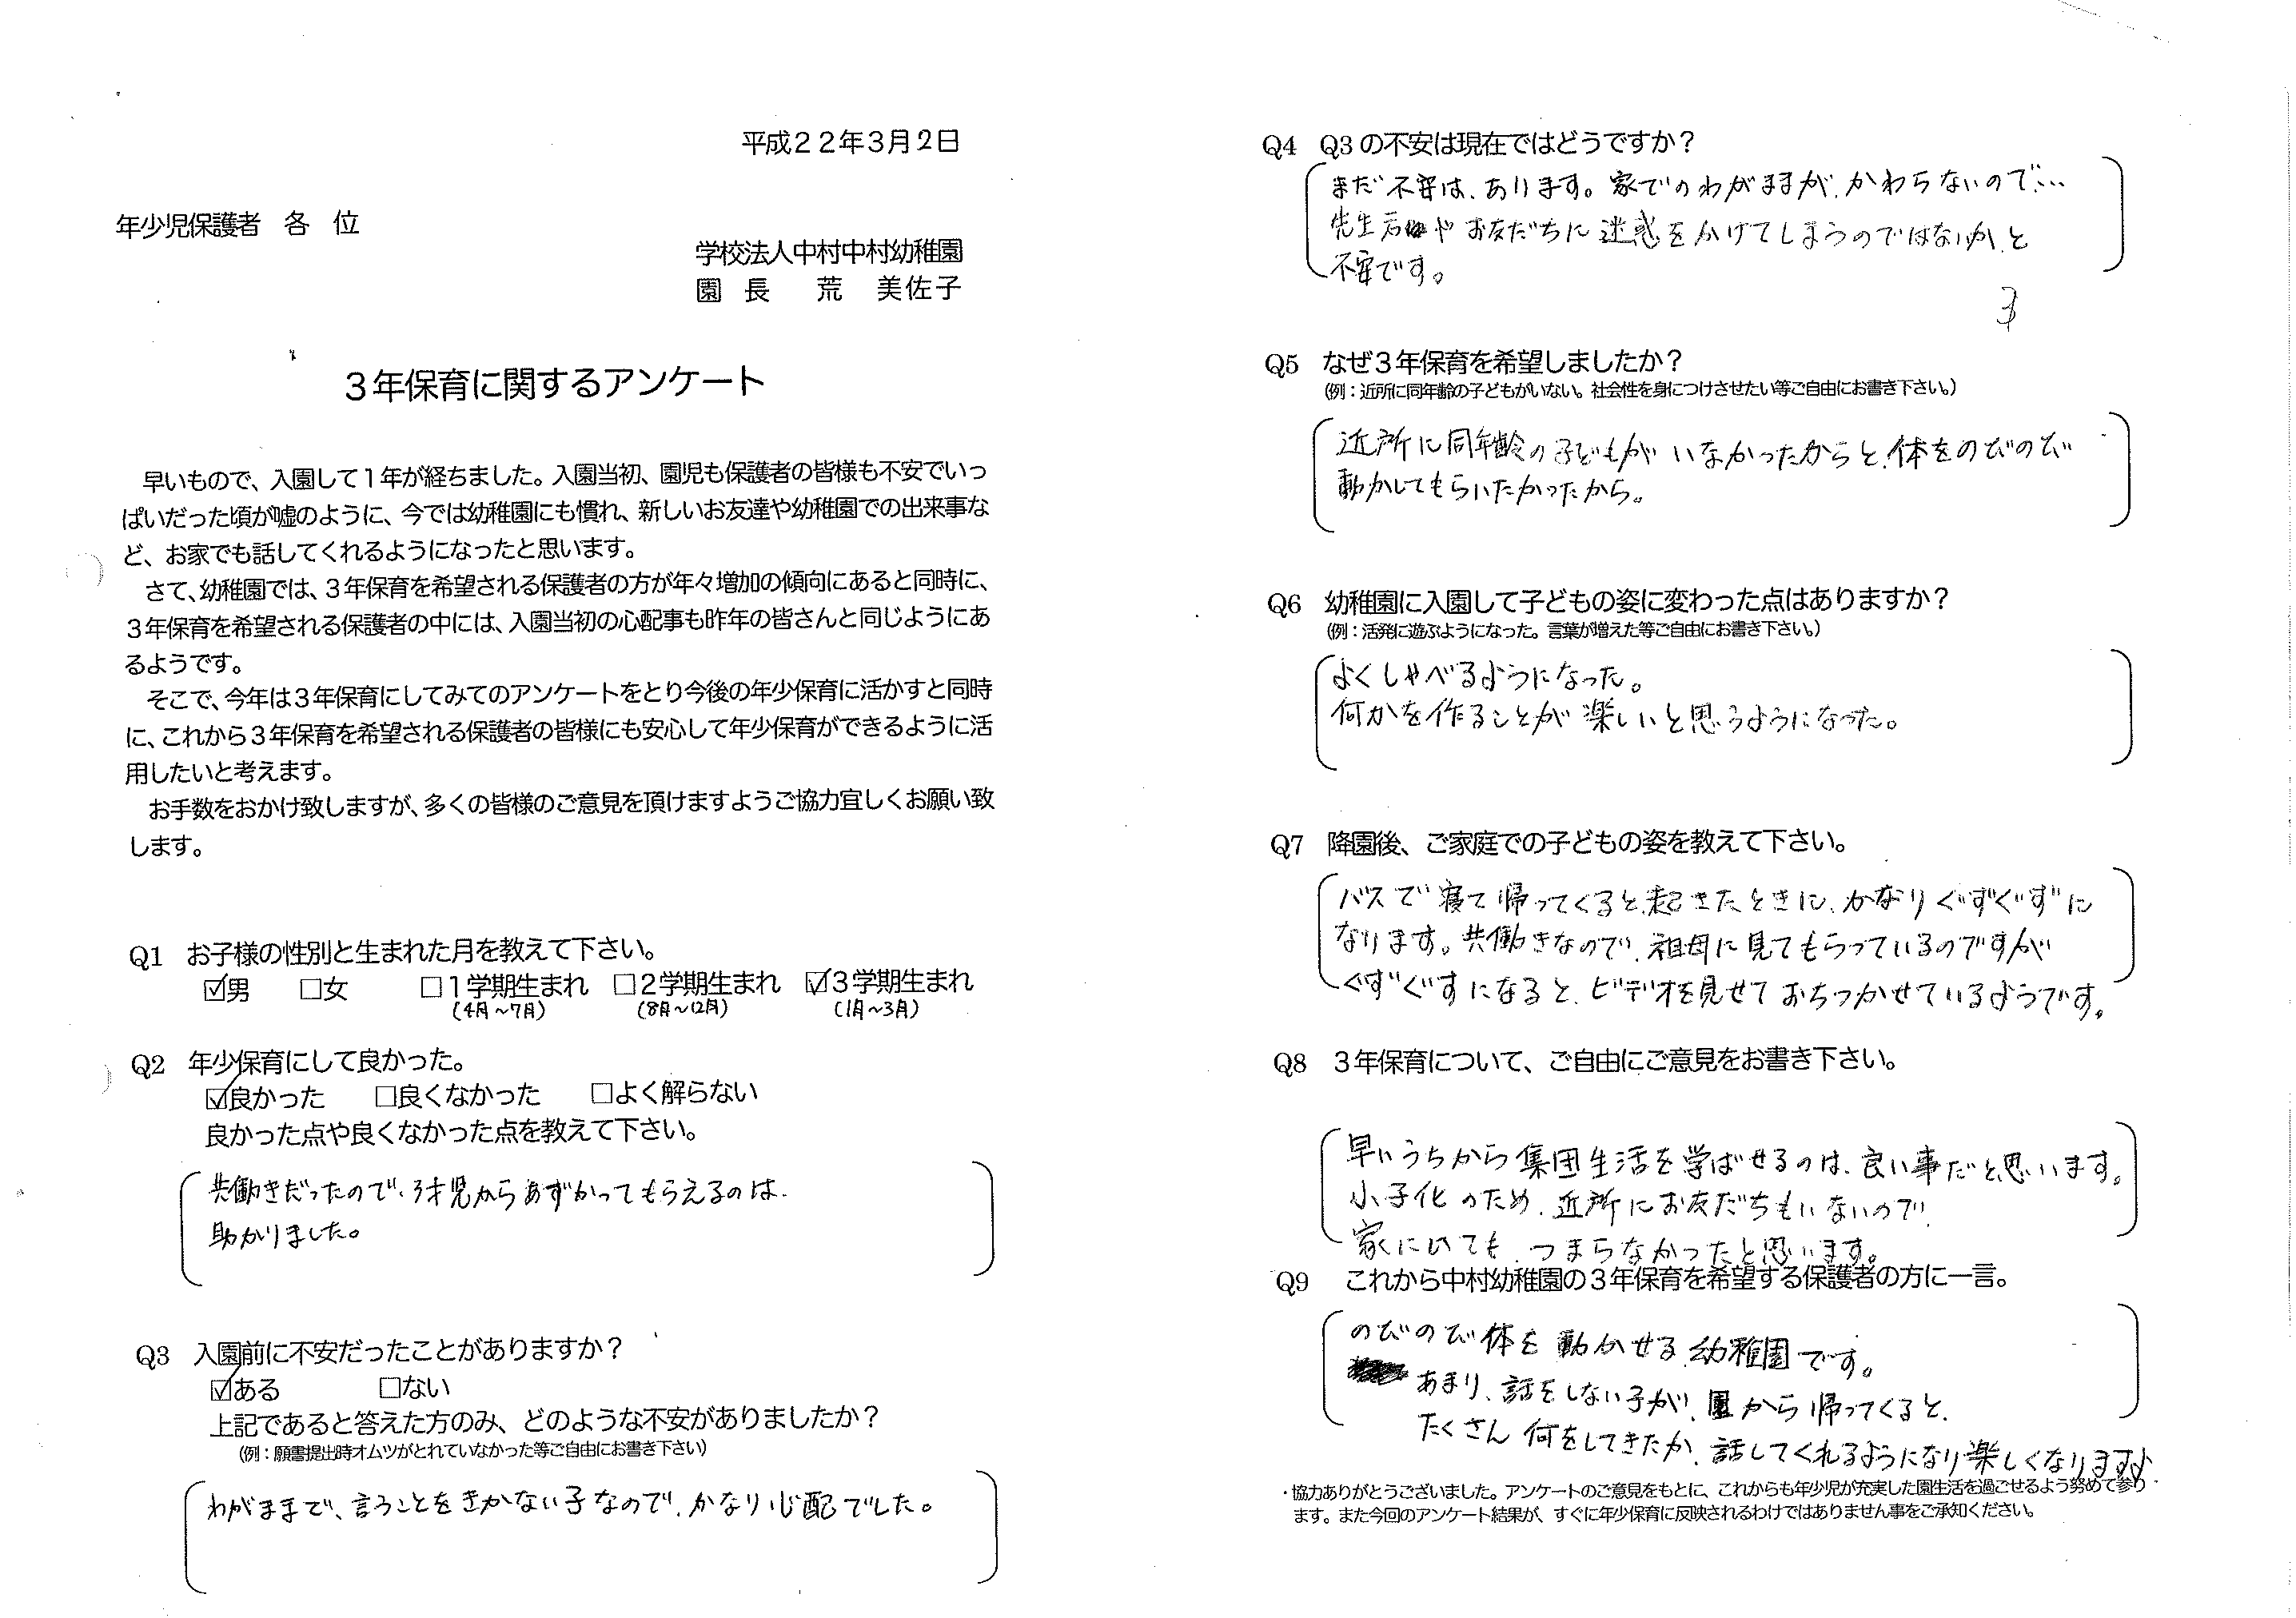 平成２２年３月２日
年少児保護者　各　位
学校法人中村中村幼稚園
園　長　　荒　美佐子
３年保育に関するアンケート
早いもので、入園して１年が経ちました。入園当初、園児も保護者の皆様も不安でいっ
ぱいだった頃が嘘のように、今では幼稚園にも慣れ、新しいお友達や幼稚園での出来事な
ど、お家でも話してくれるようになったと思います。
さて、幼稚園では、３年保育を希望される保護者の方が年々増加の傾向にあると同時に、
３年保育を希望される保護者の中には、入園当初の心配事も昨年の皆さんと同じようにあ
るようです。
そこで、今年は３年保育にしてみてのアンケートをとり今後の年少保育に活かすと同時
に、これから３年保育を希望される保護者の皆様にも安心して年少保育ができるように活
用したいと考えます。
お手数をおかけ致しますが、多くの皆様のご意見を頂けますようご協力宜しくお願い致
します。
Q1　お子様の性別と生まれた月を教えて下さい。
☑男　□女　□１学期生まれ　□２学期生まれ　☑３学期生まれ
（4月～7月）　（8月～12月）　（1月～3月）
Q2　年少保育にして良かった。
☑良かった　□良くなかった　□よく解らない
良かった点や良くなかった点を教えて下さい。
共働きだったので、3才児からあずかってもらえるのは、
助かりました。
Q3　入園前に不安だったことがありますか？
☑ある　□ない
上記であると答えた方のみ、どのような不安がありましたか？
（例：願書提出時オムツがとれていなかった等ご自由にお書き下さい）
わがままで、言うことをきかない子なので、かなり心配でした。
Q4　Q3の不安は現在ではどうですか？
まだ不安は、あります。家でのわがままが、かわらないので…
先生方やお友だちに迷惑をかけてしまうのではないか、と
不安です。
Q5　なぜ３年保育を希望しましたか？
（例：近所に同年齢の子どもがいない。社会性を身につけさせたい等ご自由にお書き下さい。）
近所に同年齢の子どもがいなかったからと、体をのびのび
動かしてもらいたかったから。
Q6　幼稚園に入園して子どもの姿に変わった点はありますか？
（例：活発に遊ぶようになった。言葉が増えた等ご自由にお書き下さい。）
よくしゃべるようになった。
何かを作ることが楽しいと思うようになった。
Q7　降園後、ご家庭での子どもの姿を教えて下さい。
バスで寝て帰ってくると、起きたときに、かなりぐずぐずに
なります。共働きなので、祖母に見てもらっているのですが
ぐずぐずになると、ビデオを見せておちつかせているようです。
Q8　３年保育について、ご自由にご意見をお書き下さい。
早いうちから集団生活を学ばせるのは、良い事だと思います。
小子化のため、近所にお友だちもいないので、
家にいても、つまらなかったと思います。
Q9　これから中村幼稚園の３年保育を希望する保護者の方に一言。
のびのび体を動かせる幼稚園です。
あまり、話をしない子が、園から帰ってくると、
たくさん何をしてきたか、話してくれるようになり楽しくなります♪
・協力ありがとうございました。アンケートのご意見をもとに、これからも年少児が充実した園生活を過ごせるよう努めて参り
ます。また今回のアンケート結果が、すぐに年少保育に反映されるわけではありません事をご承知ください。